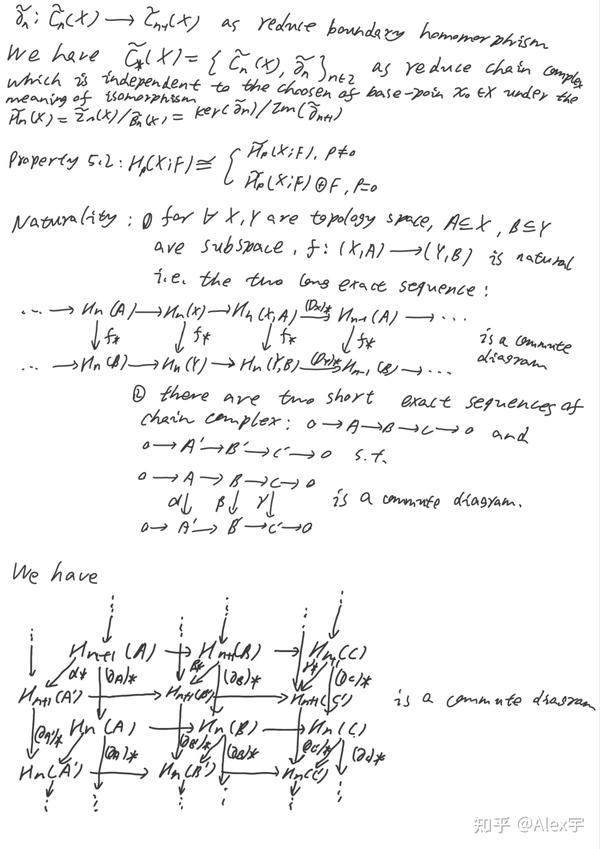 ∂̃ₙ: C̃ₙ(X) → C̃ₙ₋₁(X) as reduce boundary homomorphism
We have C̃*(X) = { C̃ₙ(X), ∂̃ₙ }ₙ∈ℤ as reduce chain complex
which is independent to the choosen of base-poin x₀∈X under the
meaning of isomorphism
H̃ₙ(X) = Z̃ₙ(X)/B̃ₙ(X) = ker(∂̃ₙ)/Im(∂̃ₙ₊₁)
Property 5.2: Hₚ(X;F) ≅ { H̃ₚ(X;F), p≠0
H̃ₚ(X;F)⊕F, p=0
Naturality: ① for ∀ X,Y are topology space, A⊆X, B⊆Y
are subspace, f: (X,A) → (Y,B) is natural
i.e. the two long exact sequence:
⋯ → Hₙ(A) → Hₙ(X) → Hₙ(X,A) (∂ₓ)* → Hₙ₋₁(A) → ⋯
↓f* ↓f* ↓f* ↓f* is a commute diagram
⋯ → Hₙ(B) → Hₙ(Y) → Hₙ(Y,B) (∂Y)* → Hₙ₋₁(B) → ⋯
② there are two short exact sequences of
chain complex: 0→A→B→C→0 and
0→A'→B'→C'→0 s.t.
0→A→B→C→0
α↓ β↓ γ↓ is a commute diagram.
0→A'→B'→C'→0
We have
Hₙ₊₁(A) → Hₙ₊₁(B) → Hₙ₊₁(C)
α* (∂A)* β* (∂B)* γ* (∂C)*
Hₙ₊₁(A') → Hₙ₊₁(B') → Hₙ₊₁(C') is a commute diagram
(∂A')* Hₙ(A) → (∂B')* Hₙ(B) → (∂C')* Hₙ(C)
(∂A)* (∂B)* (∂C)*
Hₙ(A') → Hₙ(B') → Hₙ(C')
知乎 @Alex宇